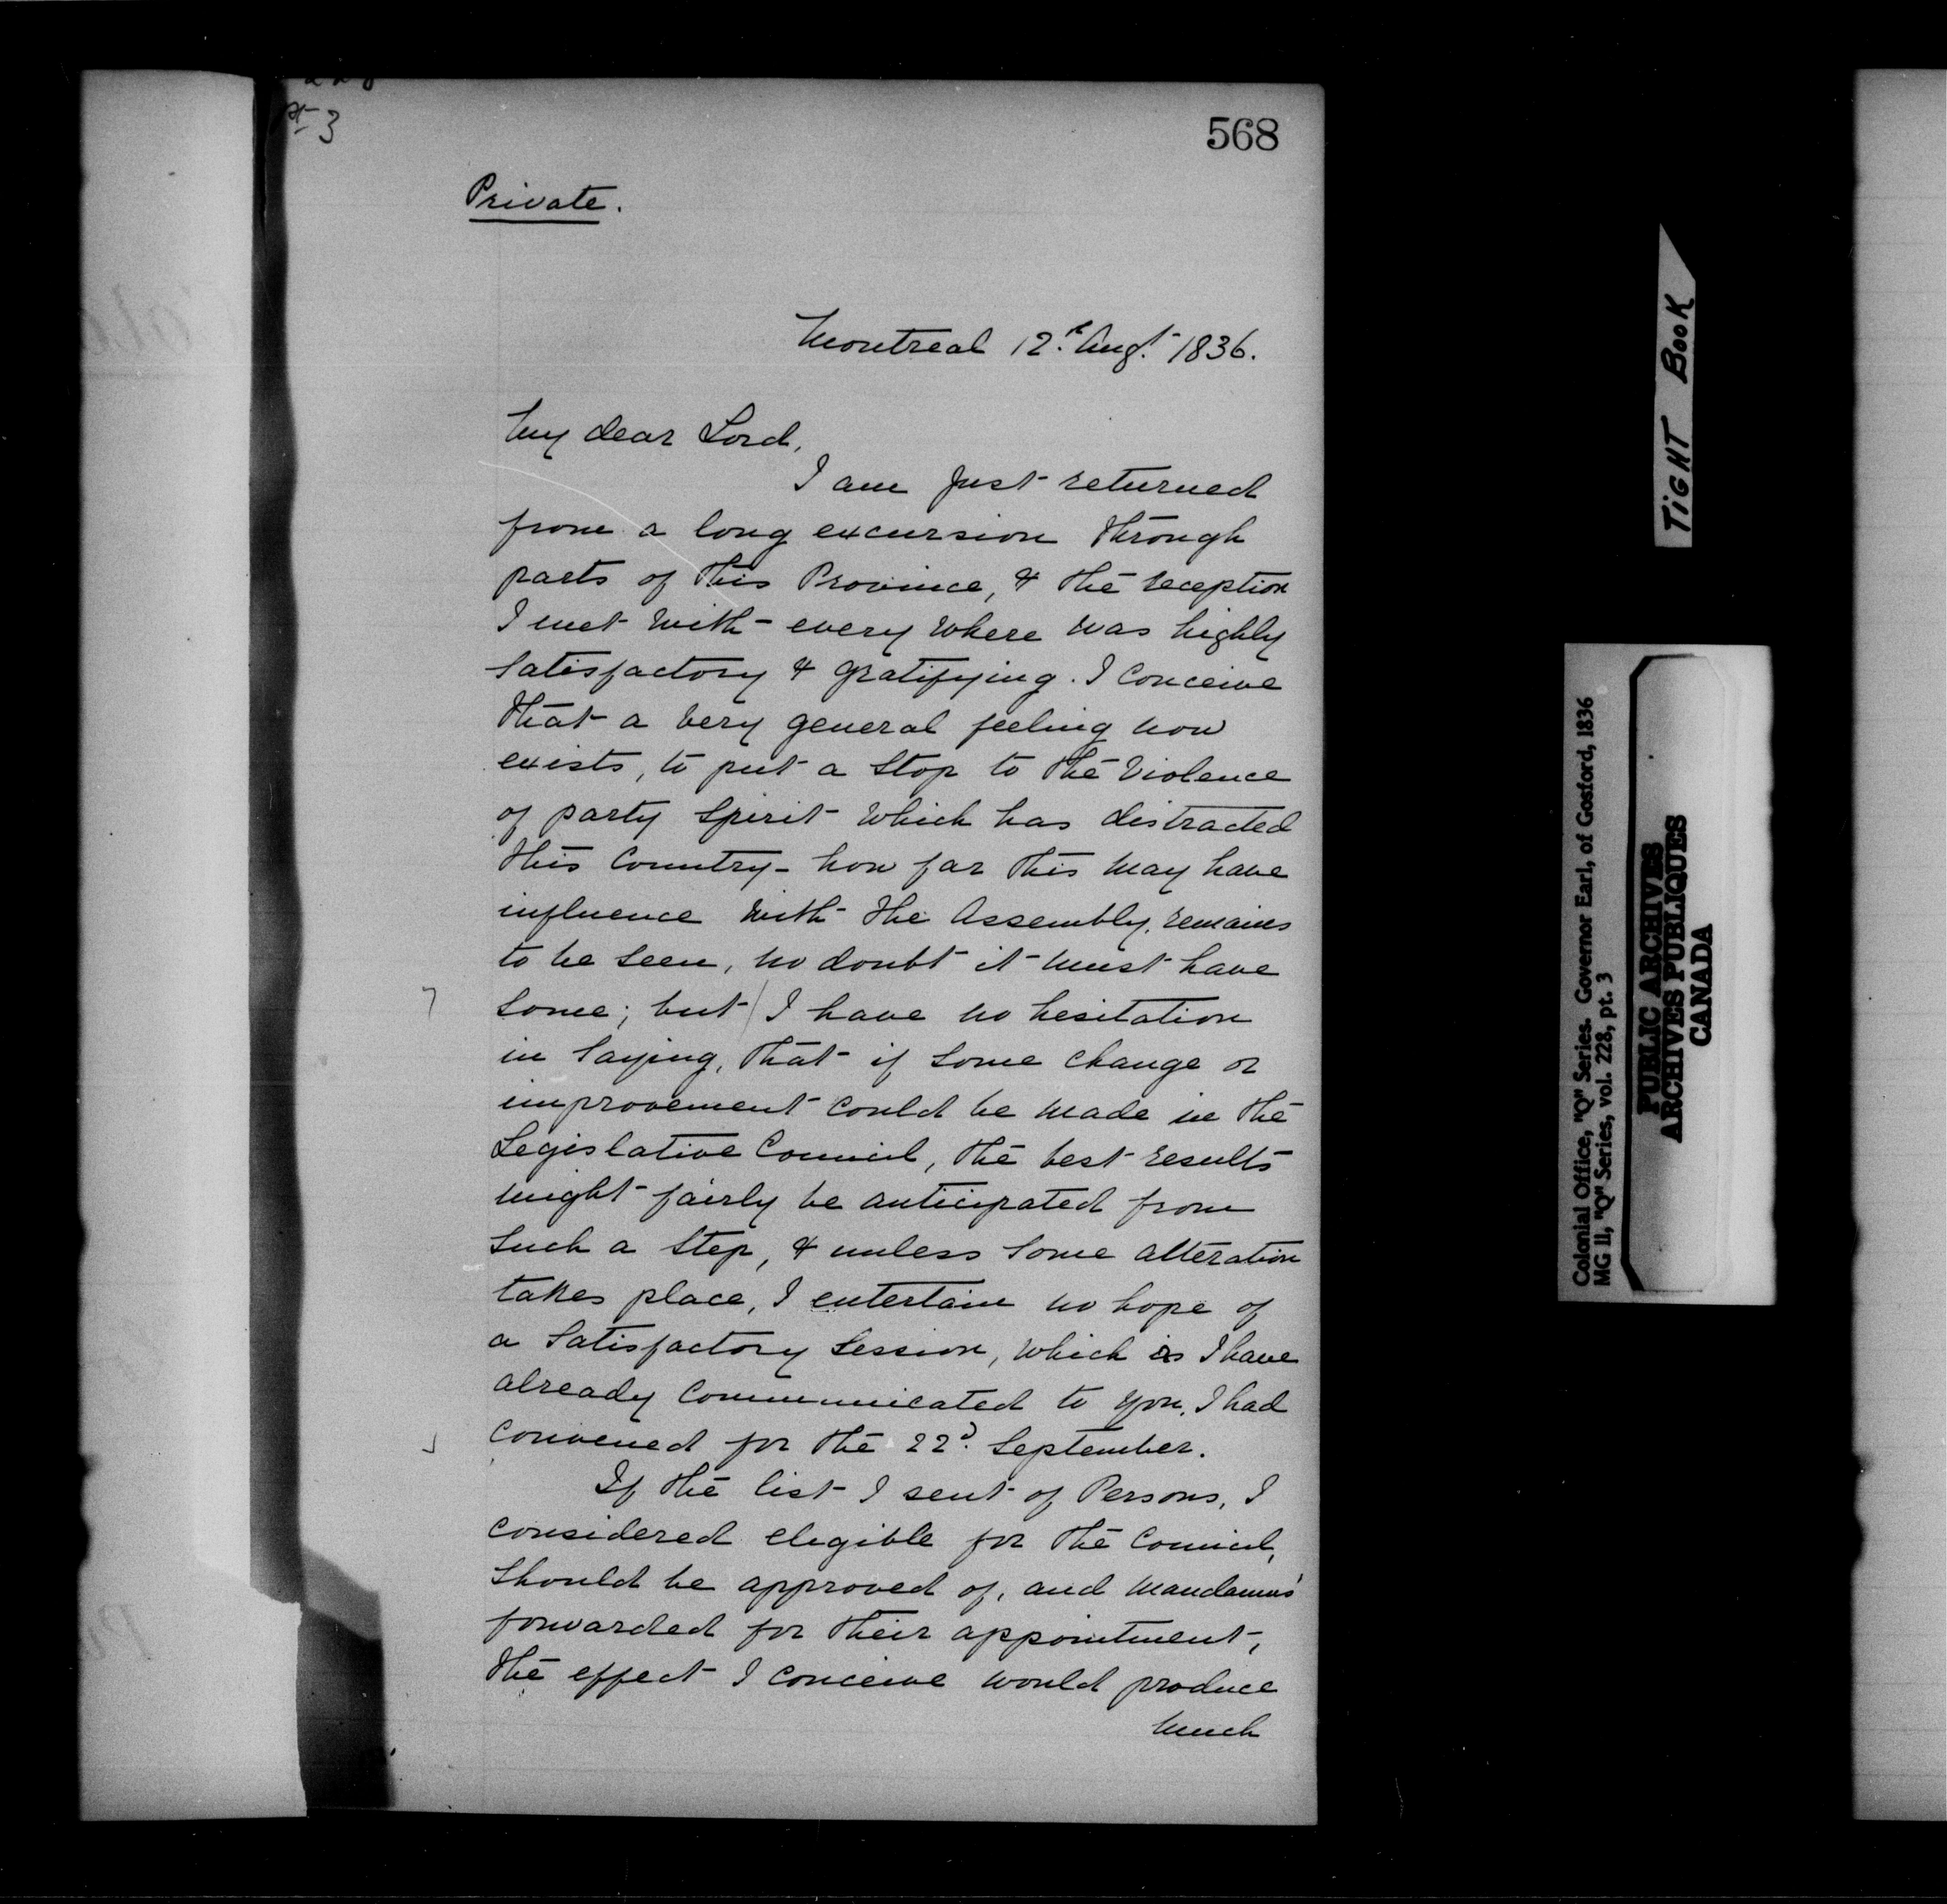 pt 3
568
Private.
Montreal 12th Augt. 1836.
My dear Lord,
I am just returned
from a long excursion through
parts of this Province, & the reception
I met with every where was highly
satisfactory & gratifying. I conceive
that a very general feeling now
exists, to put a stop to the violence
of party spirit which has distracted
this Country - how far this may have
influence with the Assembly, remains
to be seen, no doubt it must have
some; but / I have no hesitation
in saying, that if some change or
improvement could be made in the
Legislative Council, the best results
might fairly be anticipated from
such a step, & unless some alteration
takes place, I entertain no hope of
a satisfactory session, which as I have
already communicated to you, I had
convened for the 22d. September.
If the list I sent of Persons, I
considered eligible for the Council,
should be approved of, and Mandamus'
forwarded for their appointment,
the effect I conceive would produce
much
TIGHT BOOK
Colonial Office, "Q" Series. Governor Earl, of Gosford, 1836
MG 11, "Q" Series, vol. 228, pt. 3
PUBLIC ARCHIVES
ARCHIVES PUBLIQUES
CANADA